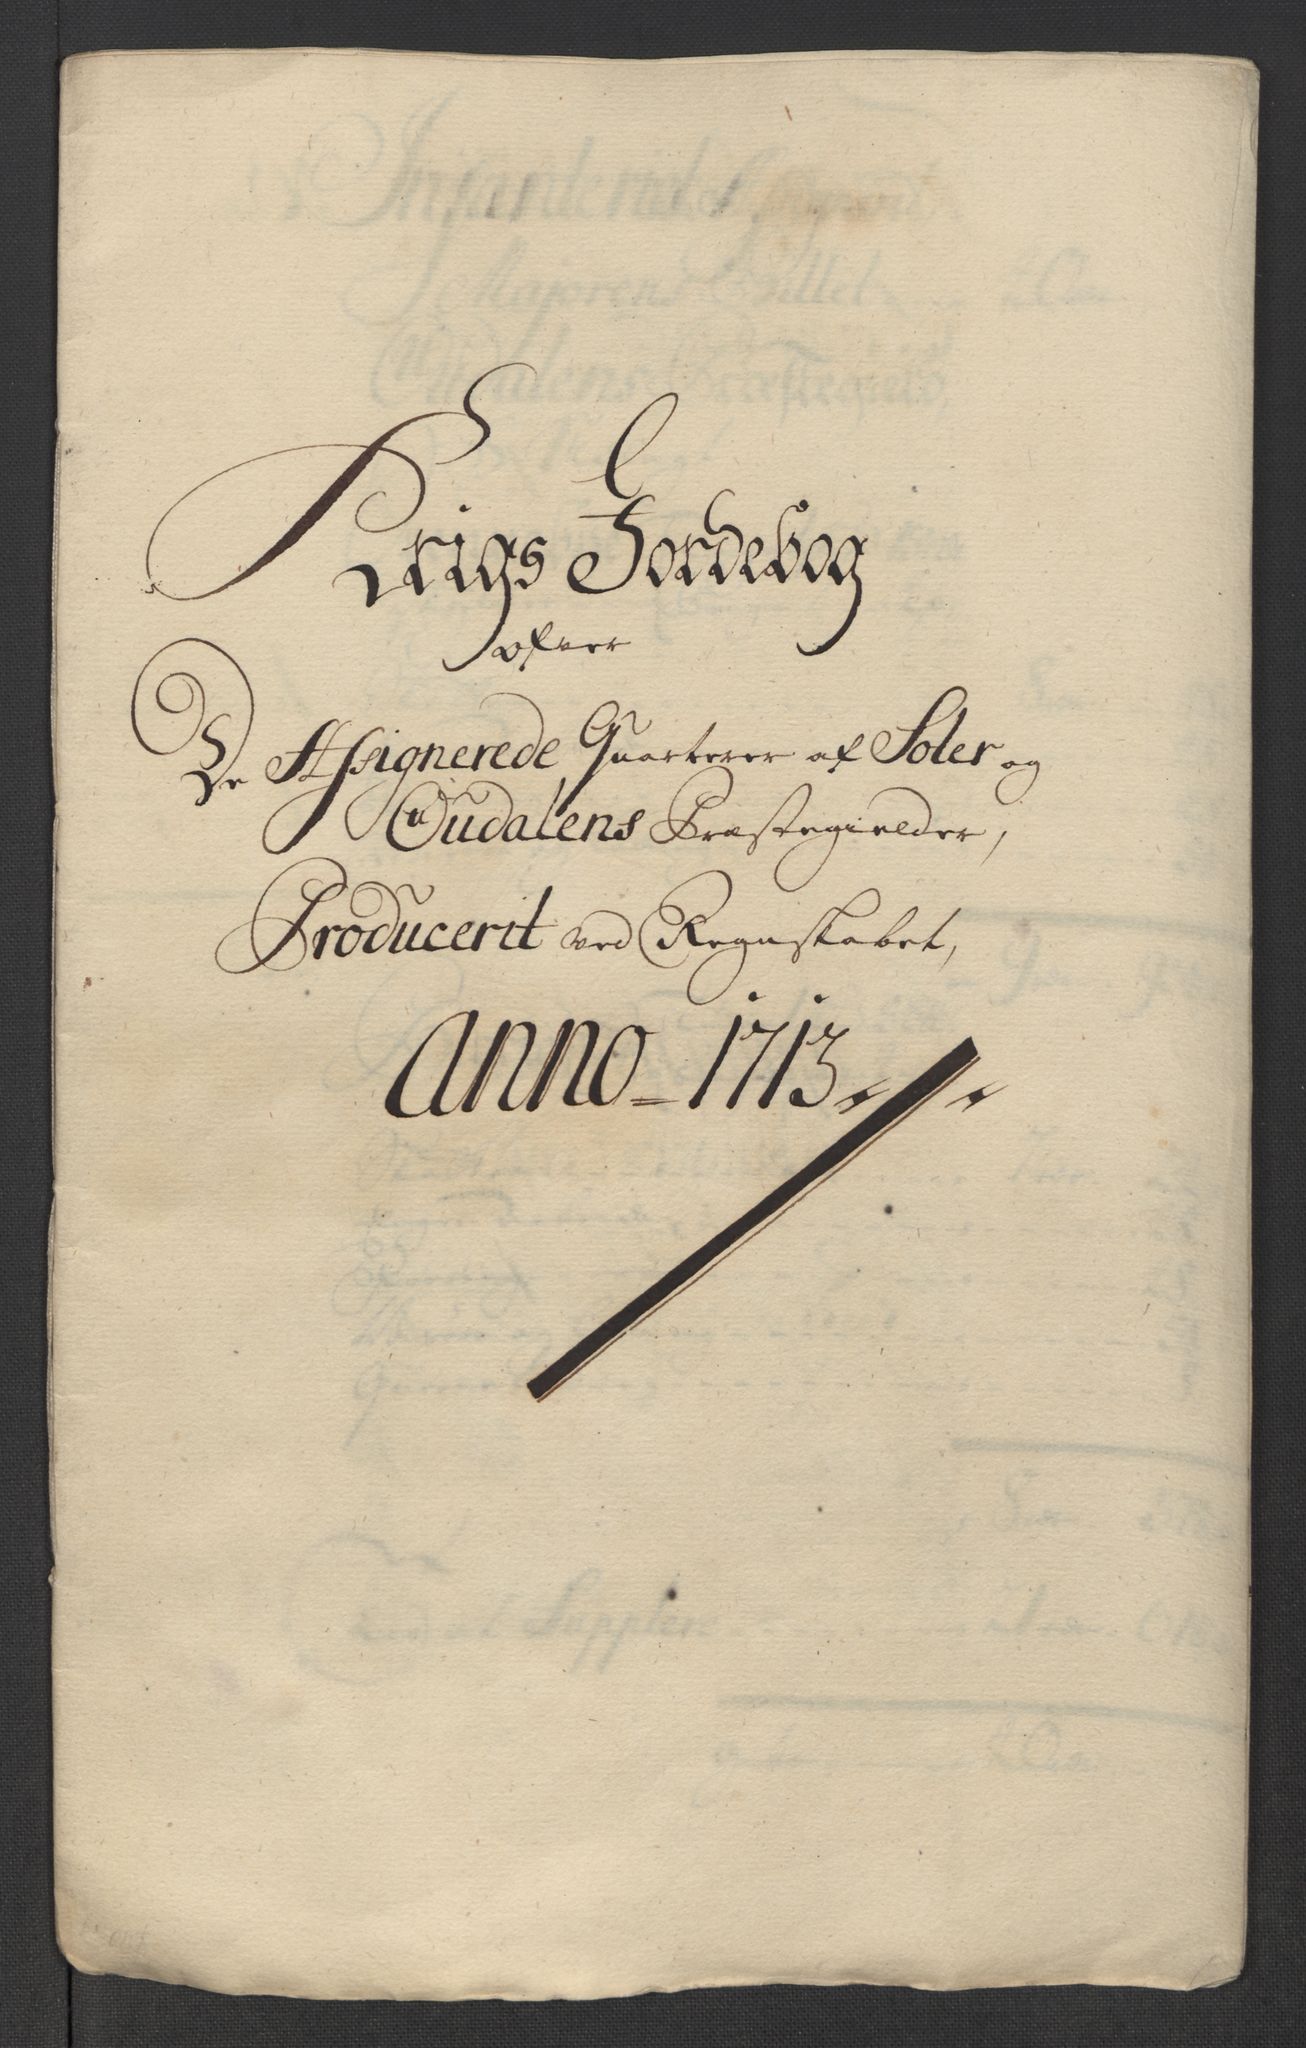 Krigs Jordebog
ofver
De Assignerede Quarterer af Soler og
Oudalens Præstegielder,
Producerit ved Regnskabet,
Anno 1713